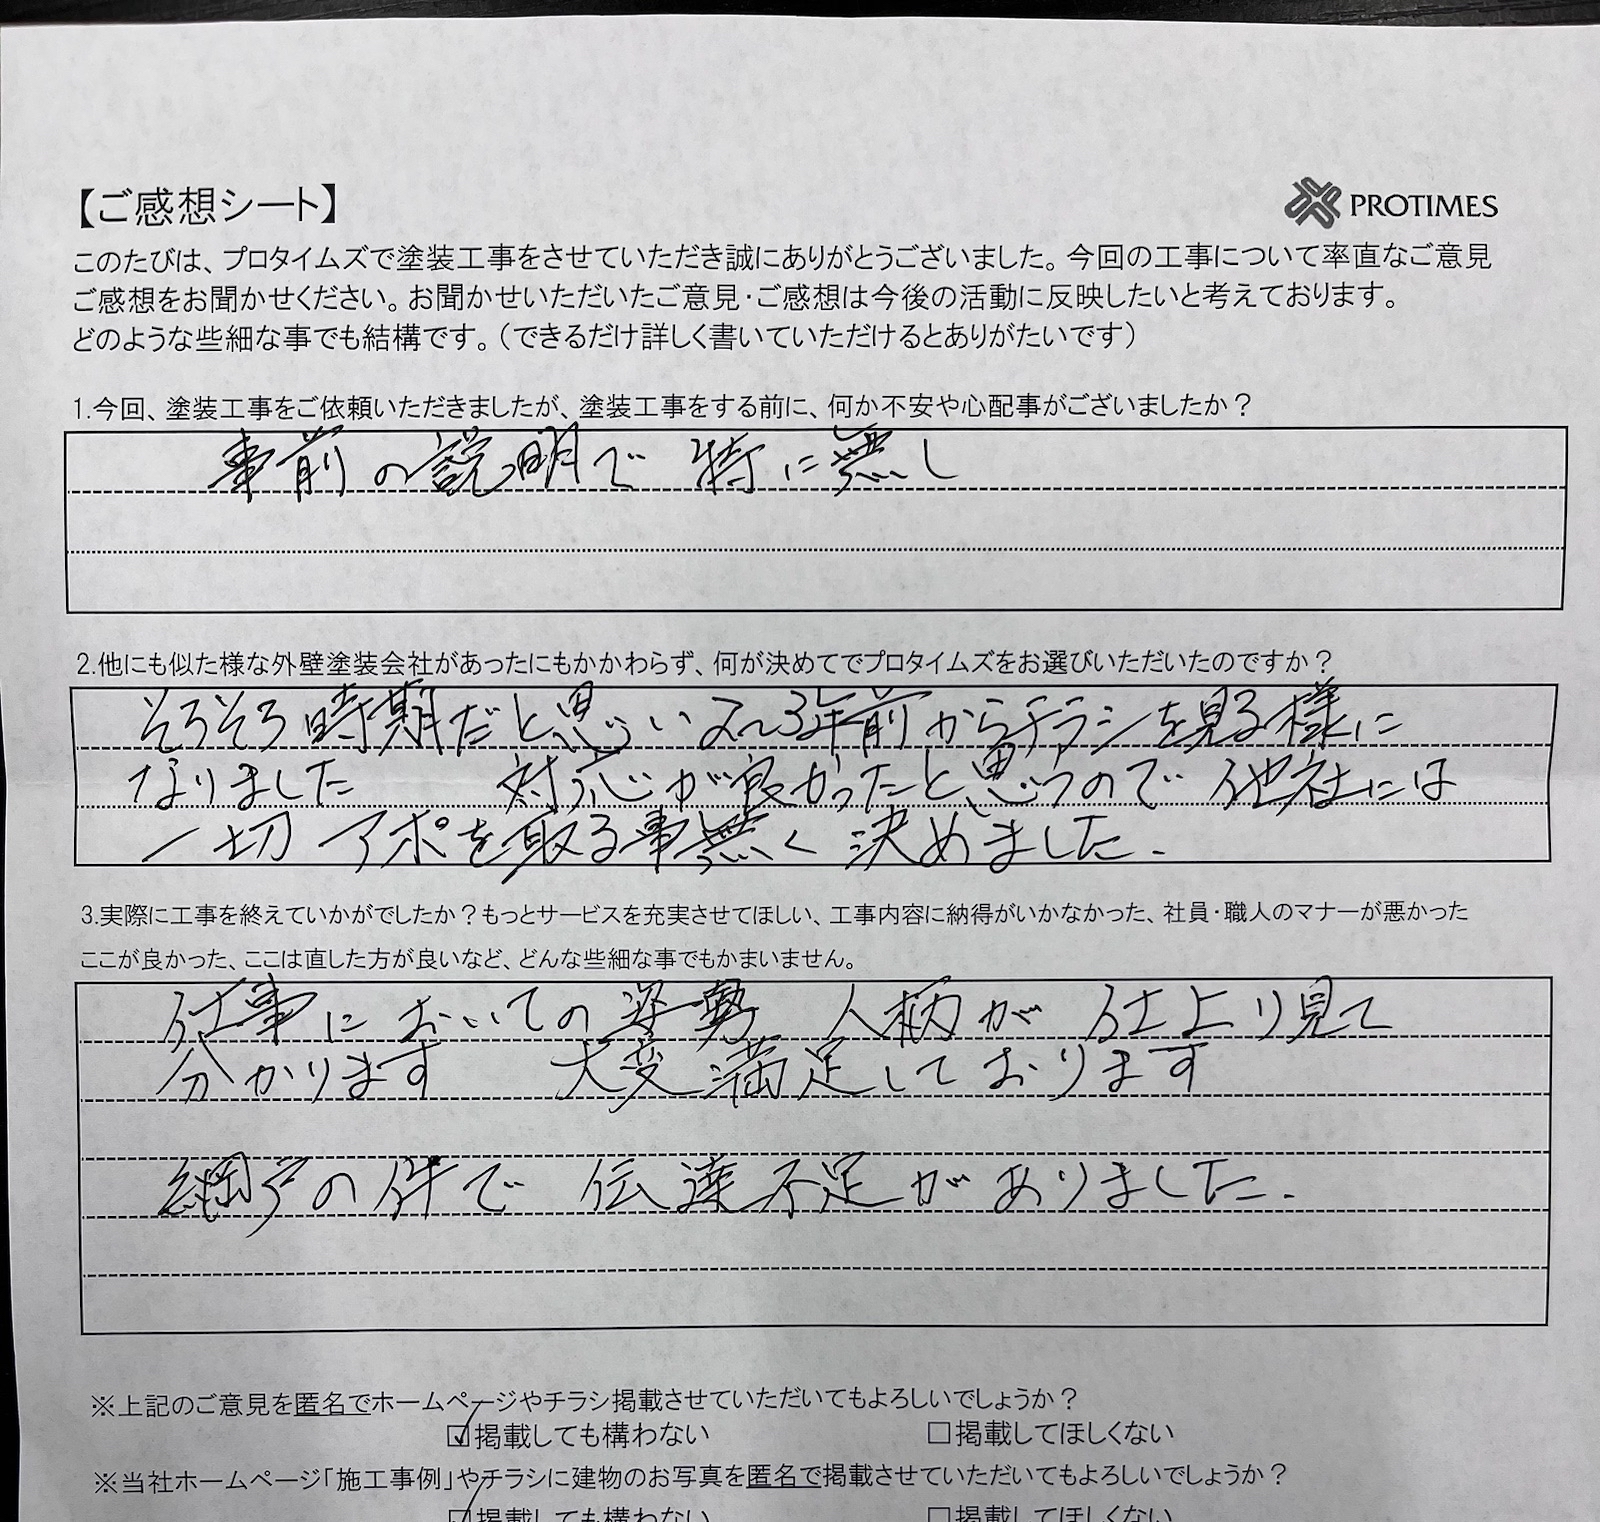 【ご感想シート】
PROTIMES
このたびは、プロタイムズで塗装工事をさせていただき誠にありがとうございました。今回の工事について率直なご意見
ご感想をお聞かせください。お聞かせいただいたご意見・ご感想は今後の活動に反映したいと考えております。
どのような些細な事でも結構です。（できるだけ詳しく書いていただけるとありがたいです）
1.今回、塗装工事をご依頼いただきましたが、塗装工事をする前に、何か不安や心配事がございましたか？
事前の説明で 特に無し
2.他にも似た様な外壁塗装会社があったにもかかわらず、何が決めてでプロタイムズをお選びいただいたのですか？
そろそろ時期だと思い 2〜3年前からチラシを見る様に
なりました 対応が良かったと思うので 他社には
一切 アポを取る事無く 決めました.
3.実際に工事を終えていかがでしたか？もっとサービスを充実させてほしい、工事内容に納得がいかなかった、社員・職人のマナーが悪かった
ここが良かった、ここは直した方が良いなど、どんな些細な事でもかまいません。
仕事においての姿勢 人柄が 仕上り見て
分かります 大変満足しております
網戸の件で 伝達不足がありました.
※上記のご意見を匿名でホームページやチラシ掲載させていただいてもよろしいでしょうか？
☑掲載しても構わない □掲載してほしくない
※当社ホームページ「施工事例」やチラシに建物のお写真を匿名で掲載させていただいてもよろしいでしょうか？
☑掲載しても構わない □掲載してほしくない